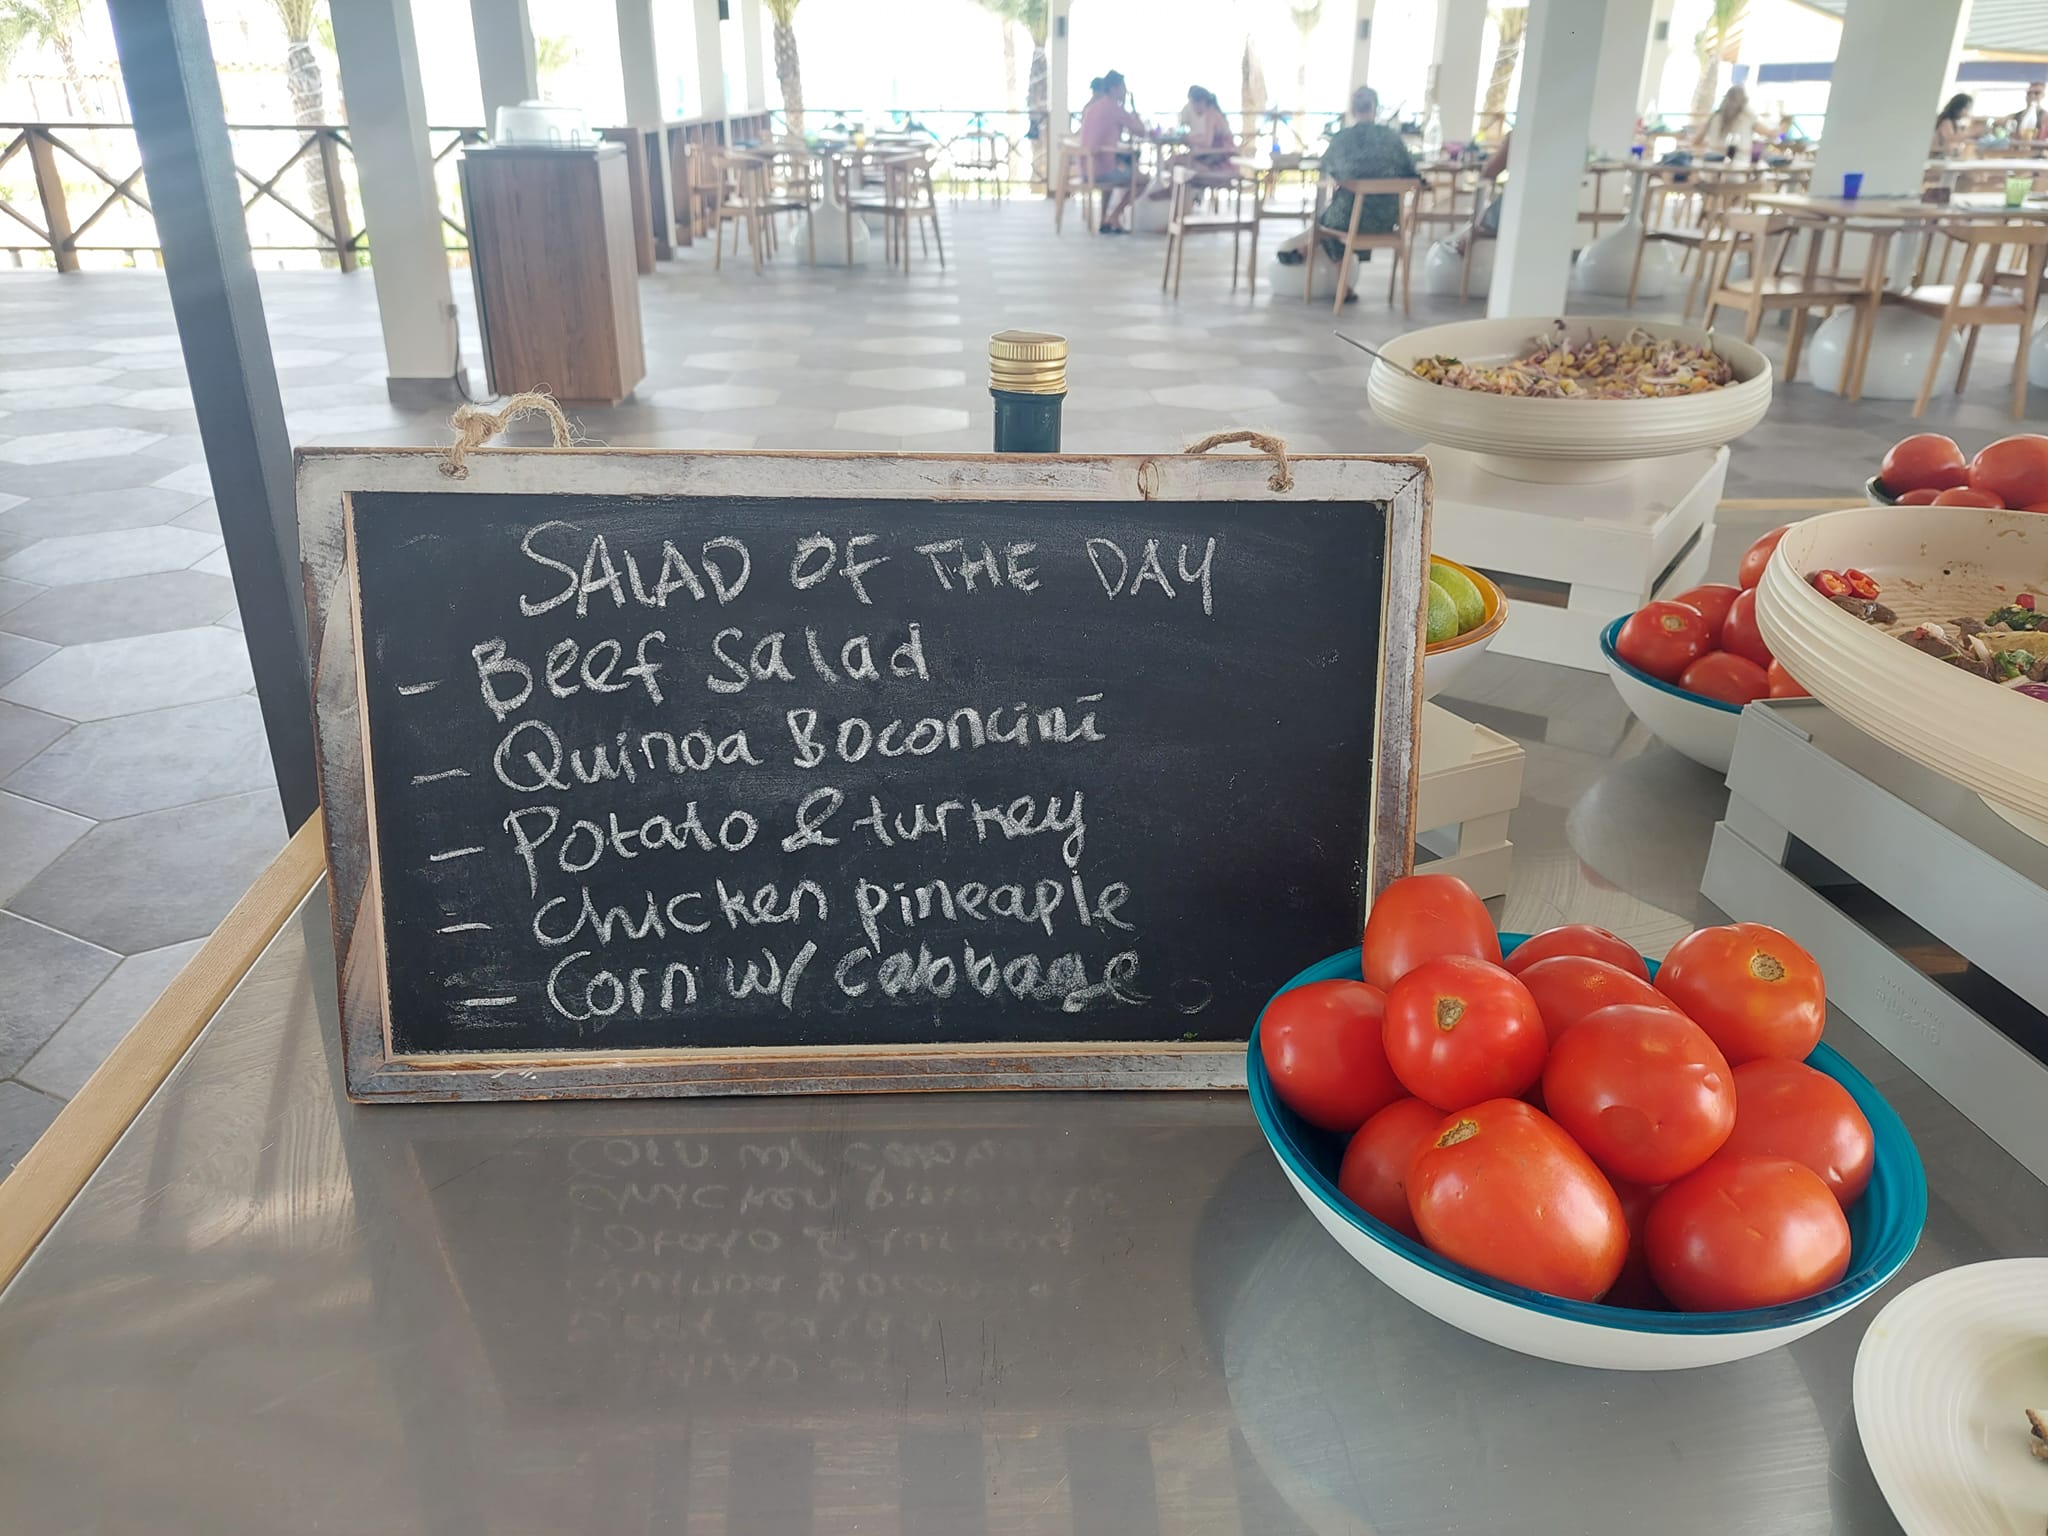 SALAD OF THE DAY
- Beef Salad
- Quinoa Boconcini
- Potato & turkey
- chicken pineaple
- Corn w/ cabbage